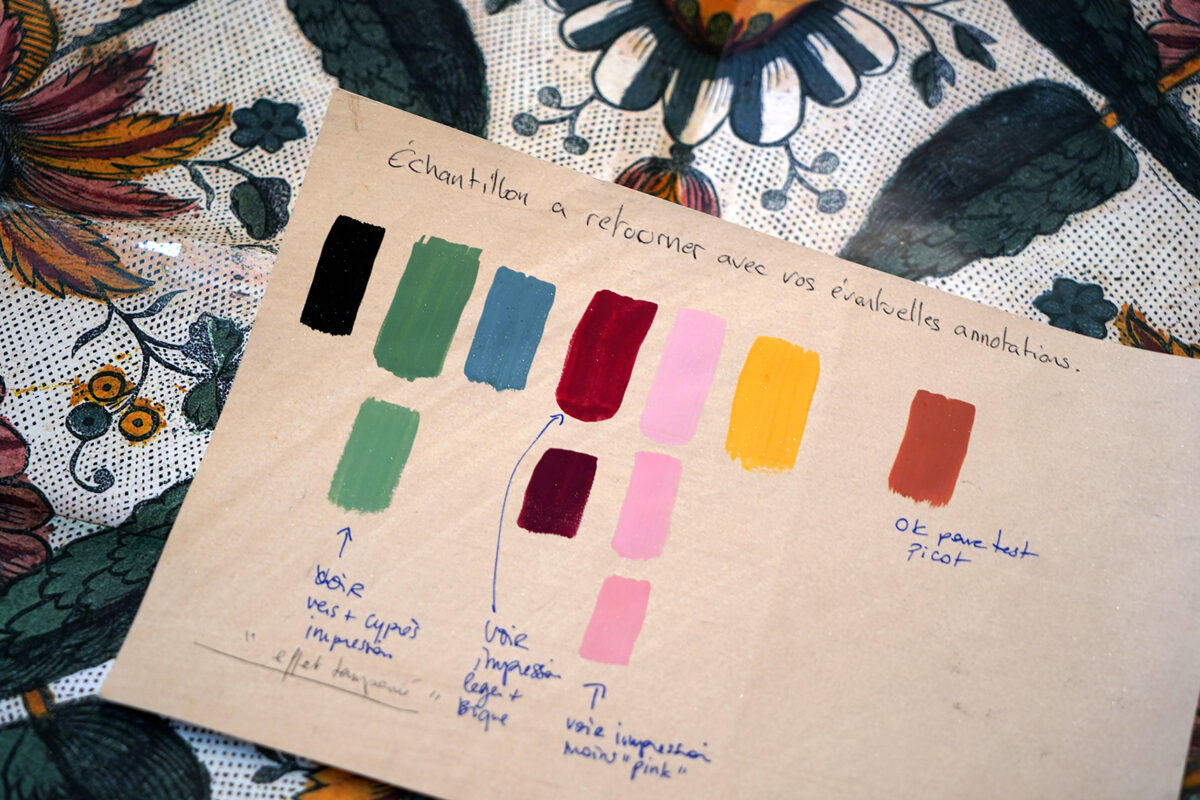 Échantillon a retourner avec vos éventuelles annotations.
OK pour test
Picot
Voir
vers + cyprès
impression
"effet tamponné"
Voir
impression
leger +
voir impression
moins "pink"